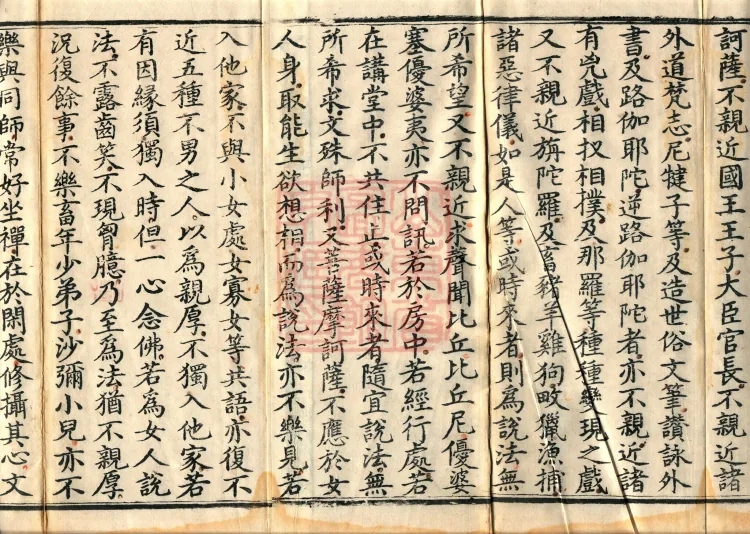 訶薩.不親近國王王子.大臣官長.不親近諸
外道梵志.尼犍子等.及造世俗文筆讚詠外
書.及路伽耶陀.逆路伽耶陀者.亦不親近諸
有兇戲.相扠相撲.及那羅等種種變現之戲
又不親近旃陀羅.及畜猪羊雞狗.畋獵漁捕
諸惡律儀.如是人等或時來者.則為說法.無
所希望.又不親近求聲聞比丘比丘尼.優婆
塞優婆夷.亦不問訊.若於房中.若經行處.若
在講堂中.不共住止.或時來者.隨宜說法.無
所希求.文殊師利.又菩薩摩訶薩.不應於女
人身.取能生欲想相.而為說法.亦不樂見.若
入他家.不與小女處女寡女等共語.亦復不
近五種不男之人.以為親厚.不獨入他家.若
有因緣須獨入時.但一心念佛.若為女人說
法.不露齒笑.不現胷臆.乃至為法.猶不親厚.
況復餘事.不樂畜年少弟子.沙彌小兒.亦不
樂與同師.常好坐禪.在於閑處.修攝其心.文